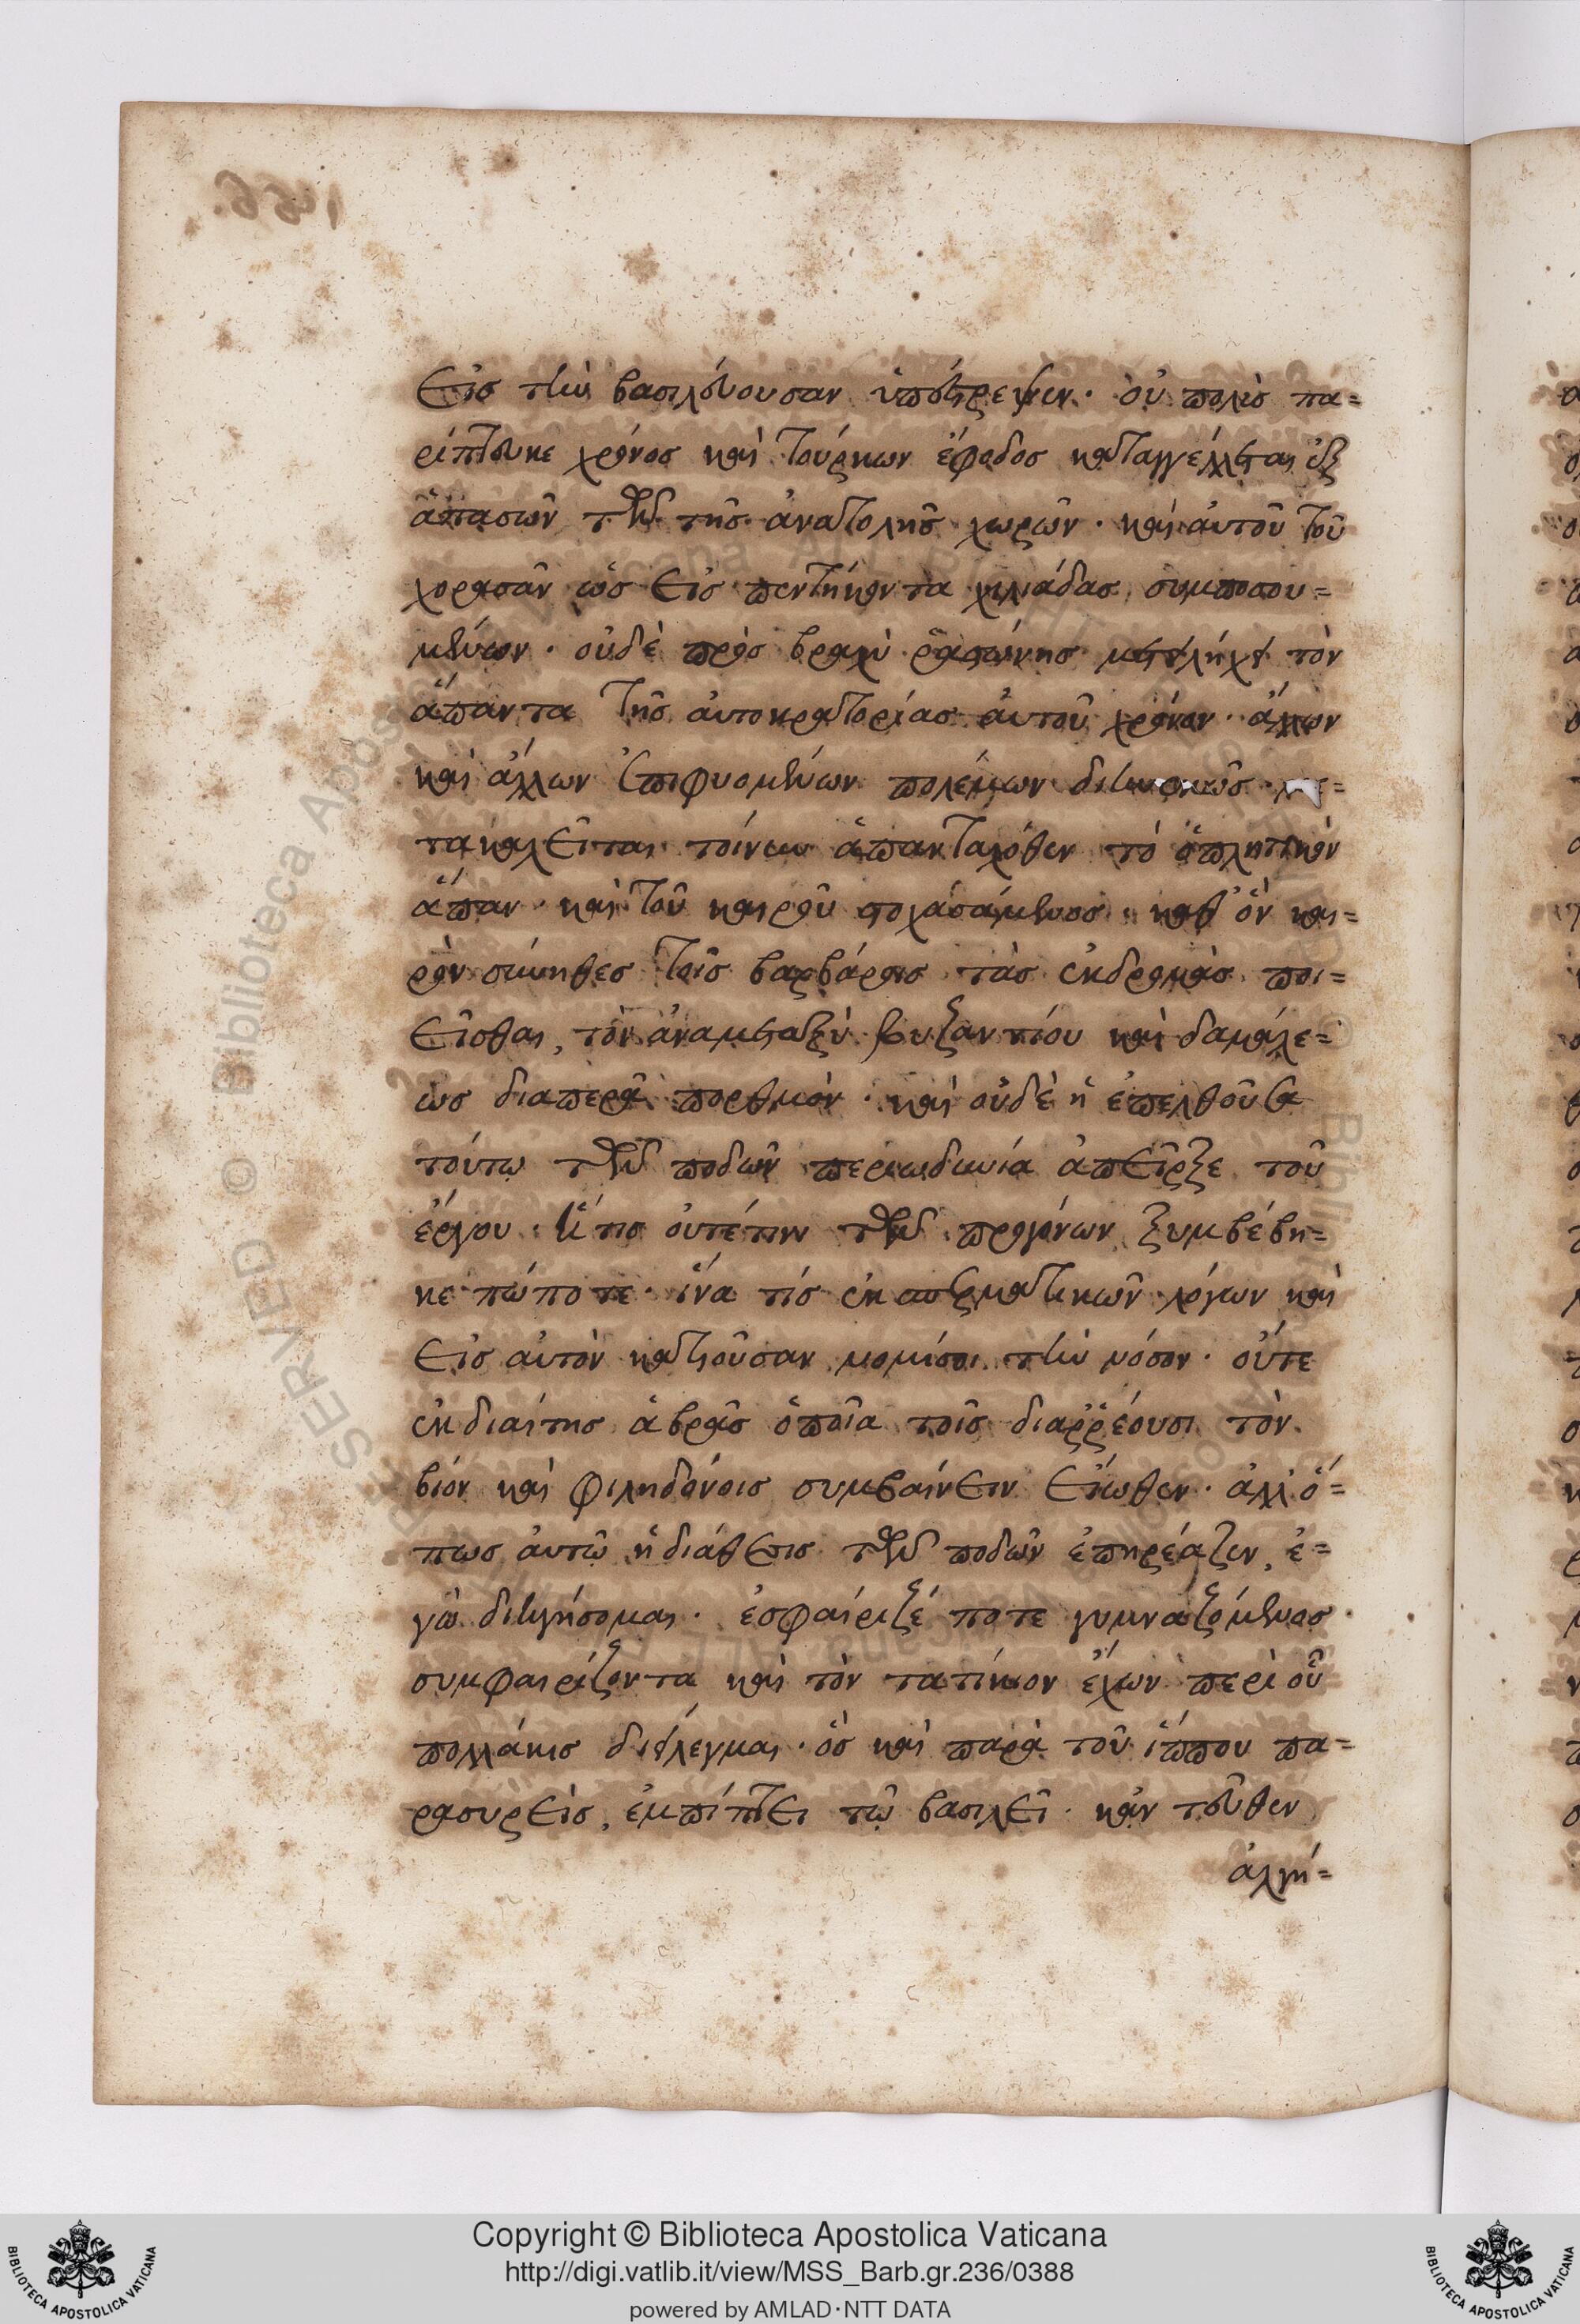 Εἰς τὴν βασιλεύουσαν ὑπέστρεψεν. οὐ πολὺς πα=
ρίππευκε χρόνος καὶ τούρκων ἔφοδος καταγγέλλεται ἐξ
ἁπασῶν τῶν τῆς ἀνατολῆς χωρῶν. καὶ αὐτοῦ τοῦ
χορασᾶν ὡς εἰς πεντήκοντα χιλιάδας συμποσου=
μένων. οὐδὲ πρὸς βραχὺ ῥαστώνης μετείληχε τὸν
ἅπαντα τῆς αὐτοκρατορίας αὐτοῦ χρόνον. ἄλλων
καὶ ἄλλων ἐπιφυομένων πολέμων διηνεκῶς. με=
τακαλεῖται τοίνυν ἁπανταχόθεν τὸ ὁπλητικὸν
ἅπαν. καὶ τοῦ καιροῦ στοχασάμενος. καθ' ὃν και=
ρὸν σύνηθες τοῖς βαρβάροις τὰς ἐκδρομὰς ποι=
εῖσθαι, τὸν ἀναμεταξὺ βυζαντίου καὶ δαμάλε=
ως διαπερᾶ πορθμόν. καὶ οὐδὲ ἡ ἐπελθοῦσα
τούτω τῶν ποδῶν περιωδυνία ἀπεῖρξε τοῦ
ἔργου. ἥτις οὐτέτινι τῶν προγόνων ξυμβέβη=
κε πώποτε. ἵνα τίς ἐκ σπερματικῶν λόγων καὶ
εἰς αὐτὸν κατιοῦσαν νομίσοι τὴν νόσον. οὔτε
ἐκ διαίτης ἁβρᾶς ὁποῖα τοῖς διαῤῥέουσι τὸν
βίον καὶ φιληδόνοις συμβαίνειν εἴωθεν. ἀλλ' ὅ=
πως αὐτῷ ἡ διάθεσις τῶν ποδῶν ἐπηρέαζεν, ἐ=
γὼ διηγήσομαι. ἐσφαίριζέ ποτε γυμναζόμενος.
συμφαιρίζοντα καὶ τὸν τατίκιον ἔχων περὶ οὗ
πολλάκις διείλεγμαι. ὃς καὶ παρὰ τοῦ ἵππου πα=
ρασυρεὶς, ἐμπίπτει τῷ βασιλεῖ. κἀν τεῦθεν
ἀλγή=
Copyright © Biblioteca Apostolica Vaticana
http://digi.vatlib.it/view/MSS_Barb.gr.236/0388
powered by AMLAD·NTT DATA